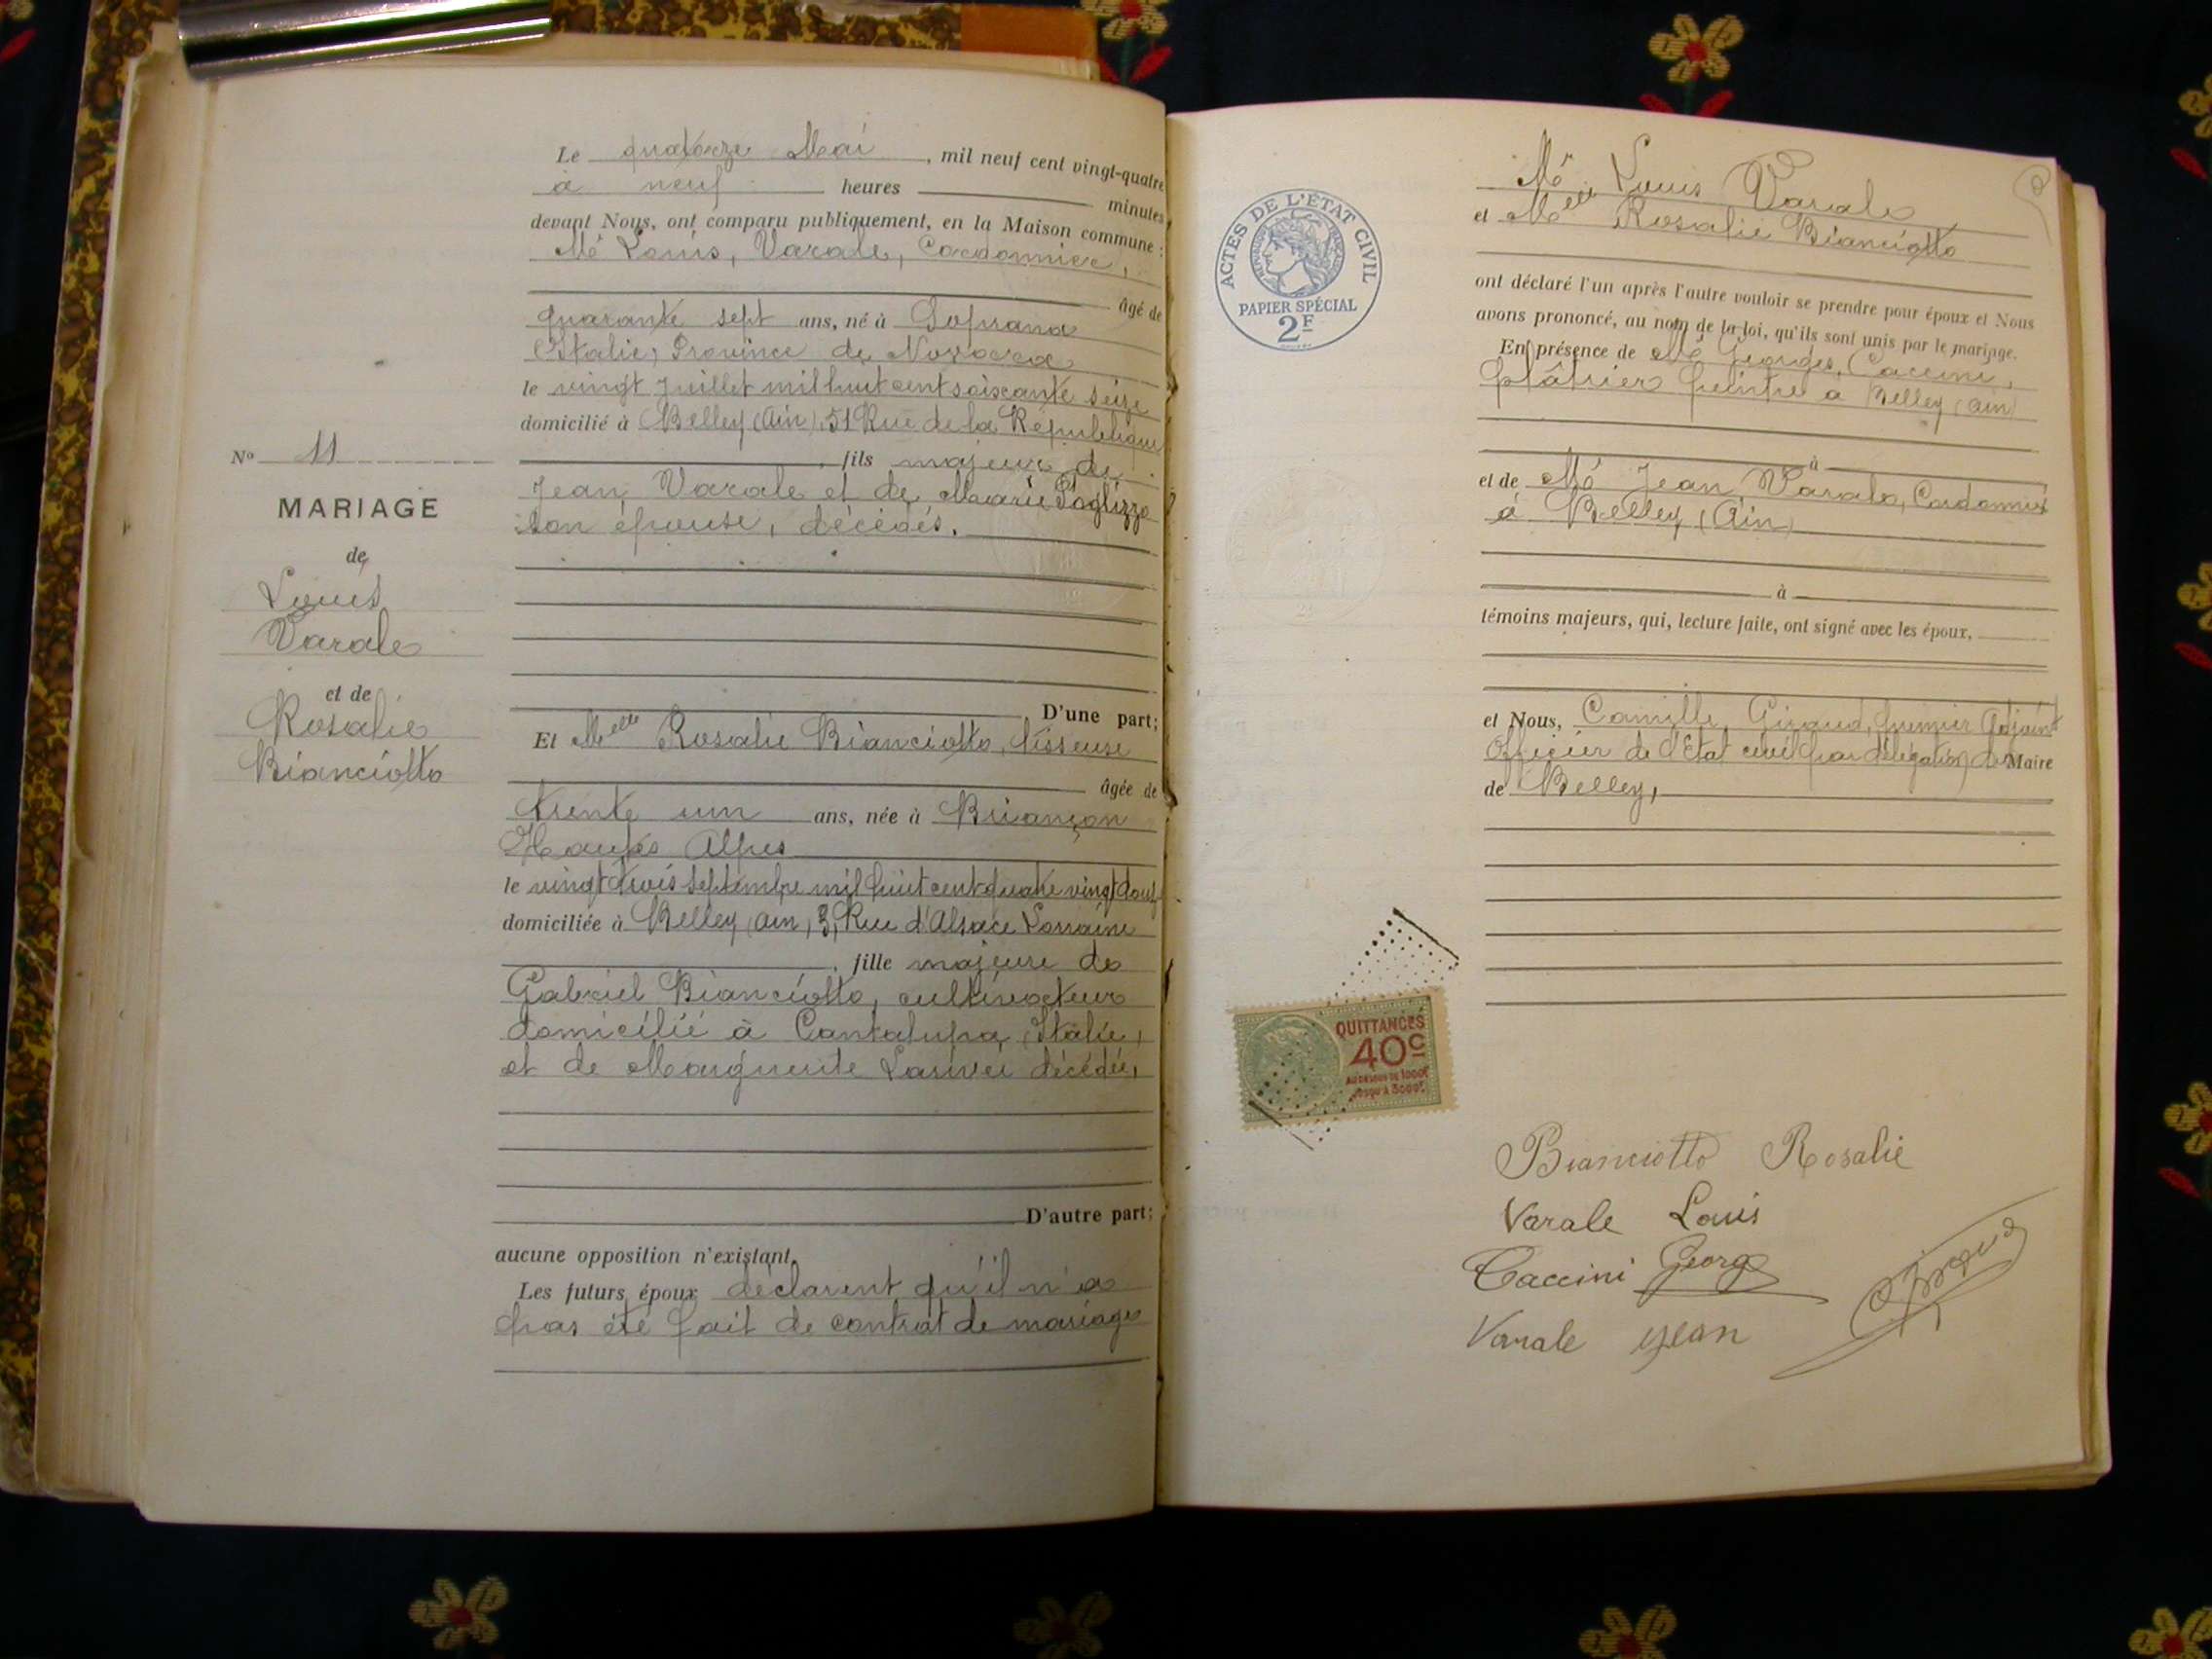 Le quatorze Mai, mil neuf cent vingt-quatre
à neuf heures minutes
devant Nous, ont comparu publiquement, en la Maison commune :
Mr Louis, Varale, Cordonnier,
âgé de
quarante sept ans, né à Soprana
Italie, Province de Novarra
le vingt Juillet mil huit cent soixante seize
domicilié à Belley (Ain) 51 Rue de la République
, fils majeur de
Jean Varale et de Marie
son épouse, décédés.
D'une part;
Et Melle Rosalie Bianciotto, lisseuse
âgée de
trente un ans, née à Briançon
Hautes Alpes
le vingt trois Septembre mil huit cent quatre vingt douze
domiciliée à Belley (Ain, 3, Rue d'Alsace Lorraine
, fille majeure de
Gabriel Bianciotto, cultivateur
domicilié à Cantalupa (Italie,
et de Marguerite décédée,
D'autre part;
aucune opposition n'existant.
Les futurs époux déclarent qu'il n'a
pas été fait de contrat de mariage
No 11
MARIAGE
de
Louis
Varale
et de
Rosalie
Bianciotto
ACTES DE L'ÉTAT CIVIL
RÉPUBLIQUE FRANÇAISE
PAPIER SPÉCIAL
2F
Mr Louis Varale
et Melle Rosalie Bianciotto
ont déclaré l'un après l'autre vouloir se prendre pour époux et Nous
avons prononcé, au nom de la loi, qu'ils sont unis par le mariage.
En présence de Mr Georges, Caccini,
plâtrier peintre à Belley (Ain)
à
et de Mr Jean Varale, Cordonnier
à Belley, (Ain)
à
témoins majeurs, qui, lecture faite, ont signé avec les époux,
et Nous, Camille Giraud, premier Adjoint
Officier de l'Etat civil par délégation du Maire
de Belley,
QUITTANCES
40c
AU DESSUS DE 1000F
JUSQU'À 3000F
Bianciotto Rosalie
Varale Louis
Caccini George
Varale Jean